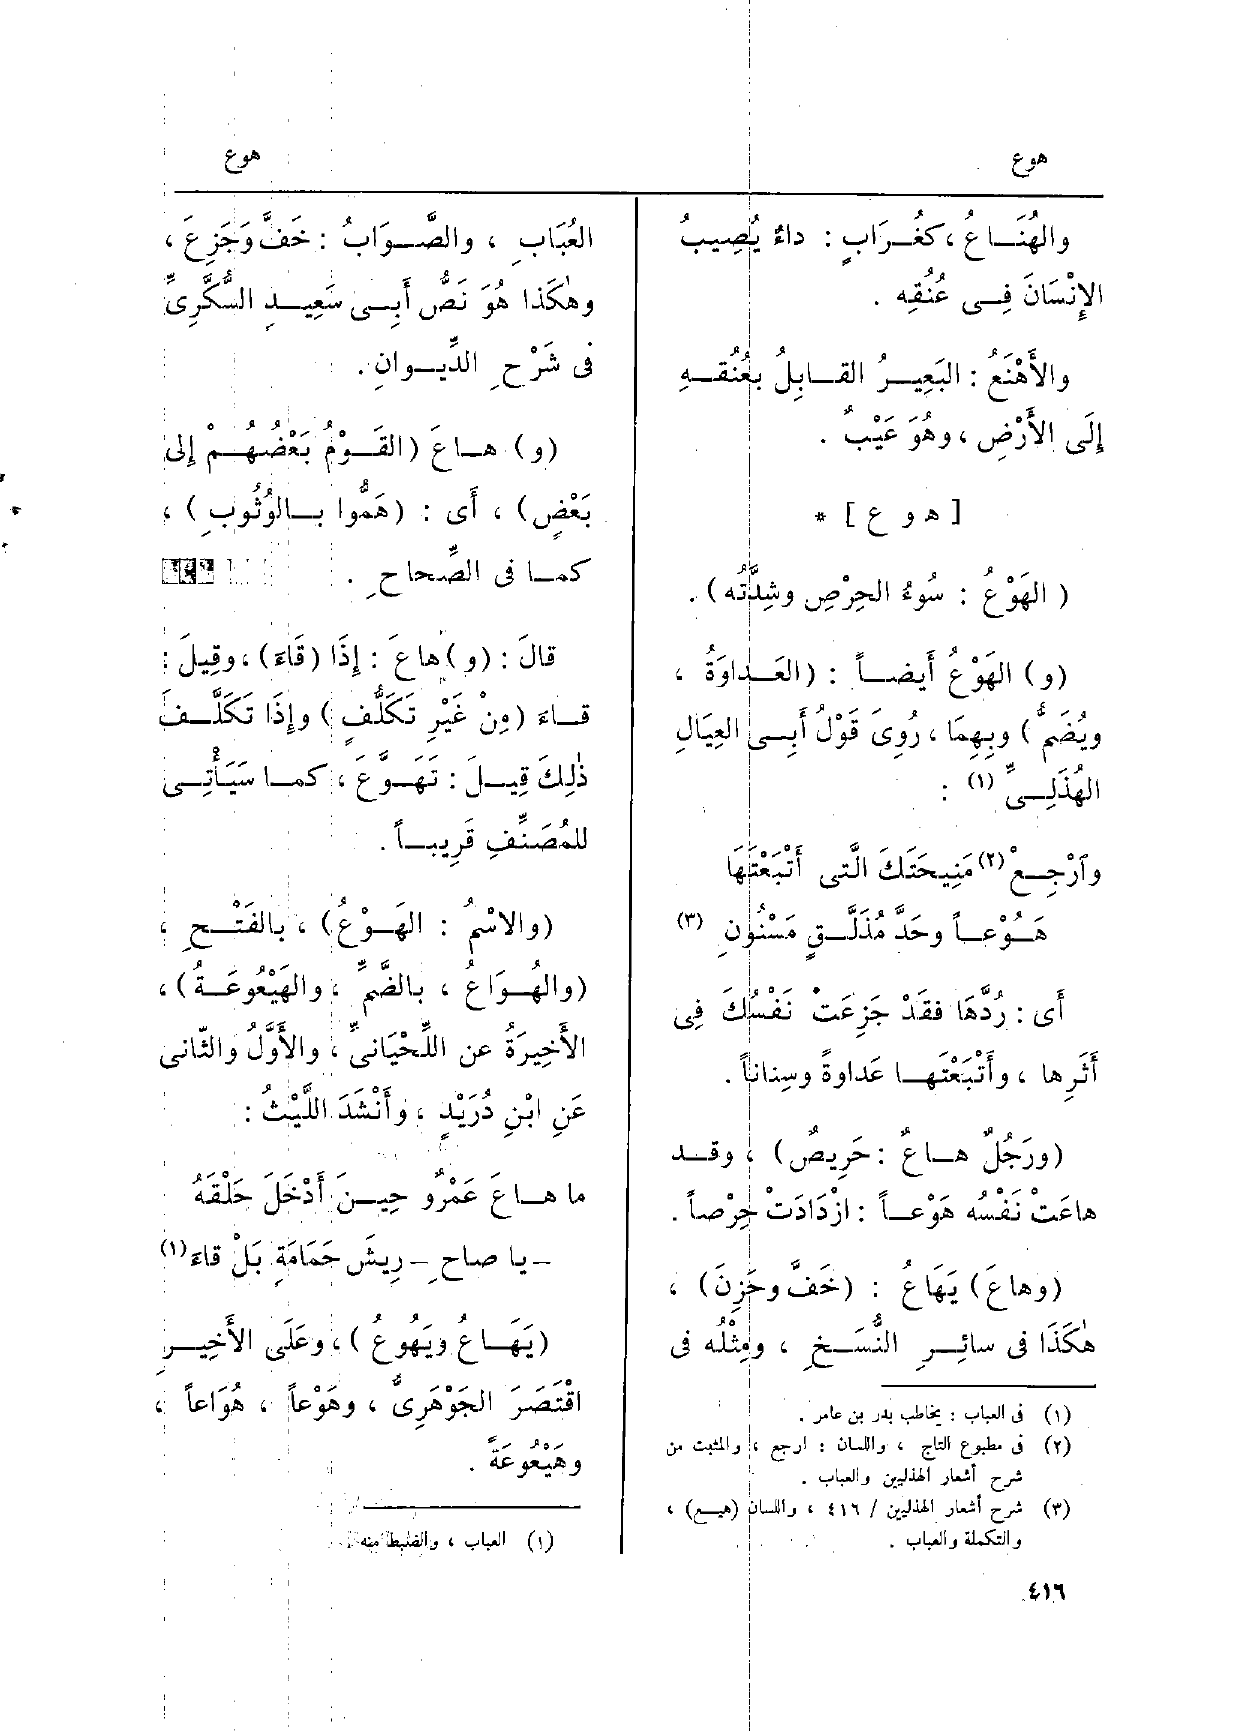 هوع
هوع
والهُنَاعُ، كغُرَابٍ : داءٌ يُصِيبُ
الإِنْسَانَ فِى عُنُقِه .
والأَهْنَعُ : البَعِيرُ القابِلُ بعُنُقِهِ
إِلَى الأَرْضِ ، وهُوَ عَيْبٌ .
[ ه و ع ] *
( الهَوْعُ : سُوءُ الحِرْصِ وشِدَّتُه ) .
(و) الهَوْعُ أَيضاً : (العَداوَةُ ،
ويُضَمُّ ) وبِهِمَا ، رُوِىَ قَوْلُ أَبِى العِيَالِ
الهُذَلِىِّ (١) :
وٱرْجِعْ(٢) مَنِيحَتَكَ الَّتى أَتْبَعْتَهَا
هَُوْعاً وحَدَّ مُذَلَّقٍ مَسْنُونِ (٣)
أَى : رُدَّهَا فقَدْ جَزِعَتْ نَفْسُكَ فِى
أَثَرِها ، وأَتْبَعْتَها عَداوةً وسِناناً .
(ورَجُلٌ هاعٌ : حَرِيصٌ ) ، وقد
هاعَتْ نَفْسُه هَوْعاً : ازْدَادَتْ حِرْصاً .
(وهاعَ) يَهَاعُ : (خَفَّ وحَزِنَ) ،
هٰكَذَا فى سائِرِ النُّسَخِ ، ومِثْلُه فى
(١) فى العباب : يخاطب بدر بن عامر .
(٢) فى مطبوع التاج ، واللسان : ارجع ، والمثبت من
شرح أشعار الهذليين والعباب .
(٣) شرح أشعار الهذليين / ٤١٦ ، واللسان (هيع) ،
والتكملة والعباب .
العُبَابِ ، والصَّوَابُ : خَفَّ وَجَزِعَ ،
وهٰكَذا هُوَ نَصُّ أَبِى سَعِيدٍ السُّكَّرِىِّ
فى شَرْحِ الدِّيوانِ .
(و) هاعَ (القَوْمُ بَعْضُهُمْ إِلى
بَعْضٍ) ، أَى : (هَمُّوا بالوُثُوبِ ) ،
كما فى الصِّحاحِ .
قالَ : (و) هاعَ : إِذَا (قَاءَ) ، وقِيلَ :
قاءَ (مِنْ غَيْرِ تَكَلُّفٍ ) وإِذَا تَكَلَّفَ
ذٰلِكَ قِيلَ : تَهَوَّعَ ، كما سَيَأْتِى
للمُصَنِّفِ قَرِيباً .
(والاسْمُ : الهَوْعُ) ، بالفَتْحِ ،
(والهُوَاعُ ، بالضَّمِّ ، والهَيْعُوعَةُ) ،
الأَخِيرَةُ عن اللِّحْيَانىِّ ، والأَوَّلُ والثّانى
عَنِ ابْنِ دُرَيْدٍ ، وأَنْشَدَ اللَّيْثُ :
ما هاعَ عَمْرٌو حِينَ أَدْخَلَ حَلْقَهُ
– يا صاحِ – رِيشَ حَمَامَةٍ بَلْ قاءَ(١)
(يَهَاعُ ويَهُوعُ ) ، وعَلَى الأَخِيرِ
اقْتَصَرَ الجَوْهَرِىُّ ، وهَوْعاً ، هُوَاعاً ،
وهَيْعُوعَةً .
(١) العباب ، والضبط منه
٤١٦